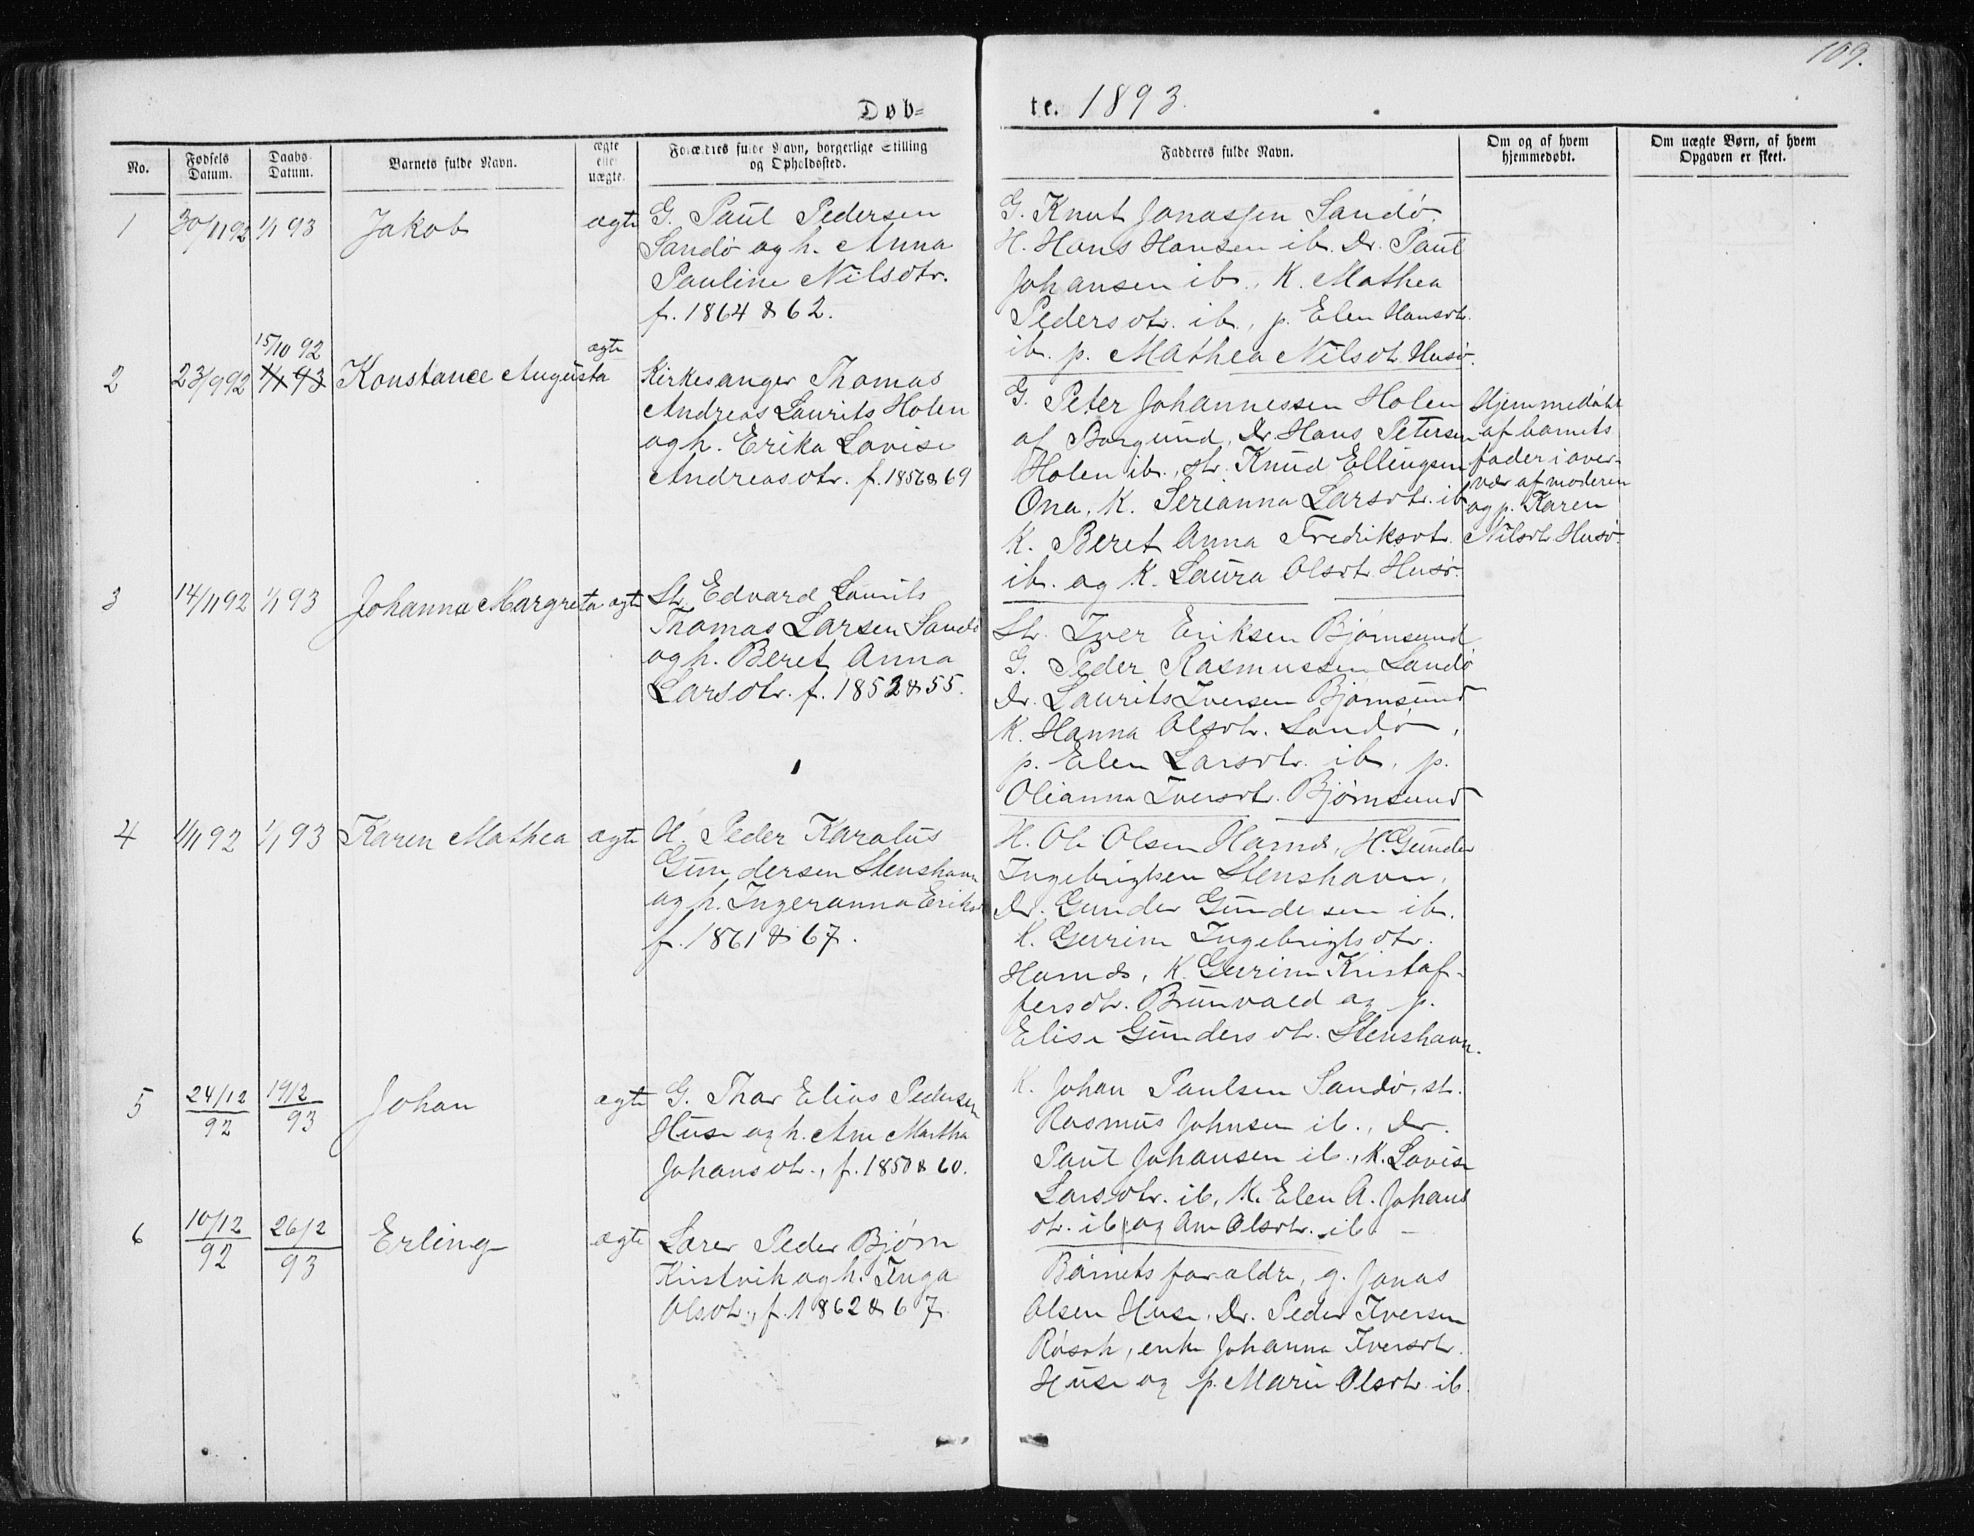 109.
Døb=
te. 1893.
No.
Fødsels
Datum.
Daabs
Datum.
Barnets fulde Navn.
ægte
eller
uægte.
Forældres fulde Navn, borgerlige Stilling
og Opholdssted.
Fadderes fulde Navn.
Om og af hvem
hjemmedøbt.
Om uægte Børn, af hvem
Opgaven er skeet.
1
30/11 92
1/1 93
Jakob
ægte
G. Paul Pedersen
Sandø og h. Anna
Pauline Nilsdtr.
f. 1864 & 62.
G. Knut Jonassen Sandø.
H. Hans Hansen ib. Dr. Paul
Johansen ib., K. Mathea
Pedersdtr. ib., p. Elen Hansdtr.
ib. p. Mathea Nilsdt. Husø.
2
23/9 92
15/10 92
1/1 93
Konstance Augusta
ægte
Kirkesanger Thomas
Andreas Laurits Holen
og h. Erika Lovise
Andreasdtr. f. 1856 & 69
G. Peter Johannessen Holen
af Borgund, Dr. Hans Petersen
Holen ib., str. Knud Ellingsen
Ona, K. Serianna Larsdtr. ib
K. Beret Anna Fredriksdt.
ib. og K. Laura Olsdt. Husø.
Hjemmedøbt
af barnets
fader i over-
vær af moderen
og p. Karen
Nilsdt. Husø.
3
14/11 92
1/1 93
Johanna Margreta
ægte
St. Edvard Laurits
Thomas Larsen Sandø
og h. Beret Anna
Larsdtr. f. 1852 & 55.
Str. Iver Eriksen Bjørnsund
G. Peder Rasmussen Sandø
Dr. Laurits Iversen Bjørnsund
K. Hanna Olsdtr. Sandø,
p. Elen Larsdtr. ib, p.
Olianna Iversdt. Bjørnsund
4
1/11 92
1/1 93
Karen Mathea
ægte
H. Peder Karolus
Gundersen Stenshavn
og h. Ingeranna Eriksd
f. 1861 & 67.
H. Ole Olsen Hamds, H. Gunder
Ingebrigtsen Stenshavn,
Dr. Gunder Gundersen ib.
K. Gurine Ingebrigtsdtr.
Hamds, K. Gurine Kristof-
fersdtr. Brunvald og p.
Elise Gundersdt. Stenshavn.
5
24/12
92
19/2
93
Johan
ægte
G. Thor Elias Pedersen
Huse og h. Ane Martha
Johansdt., f. 1850 & 60.
K. Johan Paulsen Sandø, st.
Rasmus Johnsen ib., Dr.
Paul Johansen ib., K. Lovise
Larsdtr. ib, K. Elen A. Johans
dt. ib og Ane Olsdtr. ib –
6
10/12
92
26/2
93
Erling
ægte
Lærer Peder Bjørn
Kristvik og h. Inga
Olsdt., f. 1862 & 67.
Barnets forældre, g. Jonas
Olsen Huse, Dr. Peder Iversen
Røsok, enke Johanna Iversdt.
Huse og p. Marie Olsdt. ib.